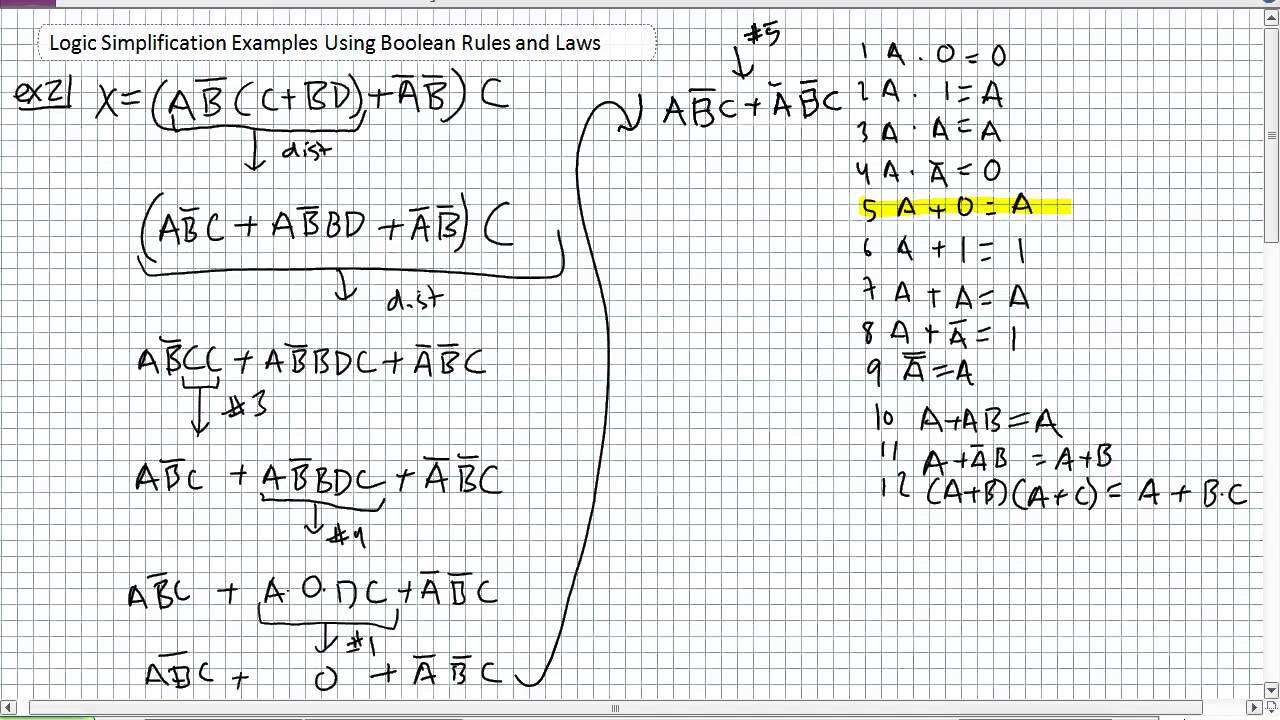 Logic Simplification Examples Using Boolean Rules and Laws
ex2) X = (AB̅(C+BD)+A̅B̅)C
dist
(AB̅C + AB̅BD + A̅B̅)C
dist
AB̅CC + AB̅BDC + A̅B̅C
#3
AB̅C + AB̅BDC + A̅B̅C
#4
AB̅C + A·0·DC + A̅B̅C
#1
AB̅C + 0 + A̅B̅C
#5
AB̅C + A̅B̅C
1 A · 0 = 0
2 A · 1 = A
3 A · A = A
4 A · A̅ = 0
5 A + 0 = A
6 A + 1 = 1
7 A + A = A
8 A + A̅ = 1
9 A̿ = A
10 A+AB = A
11 A+A̅B = A+B
12 (A+B)(A+C) = A + B·C